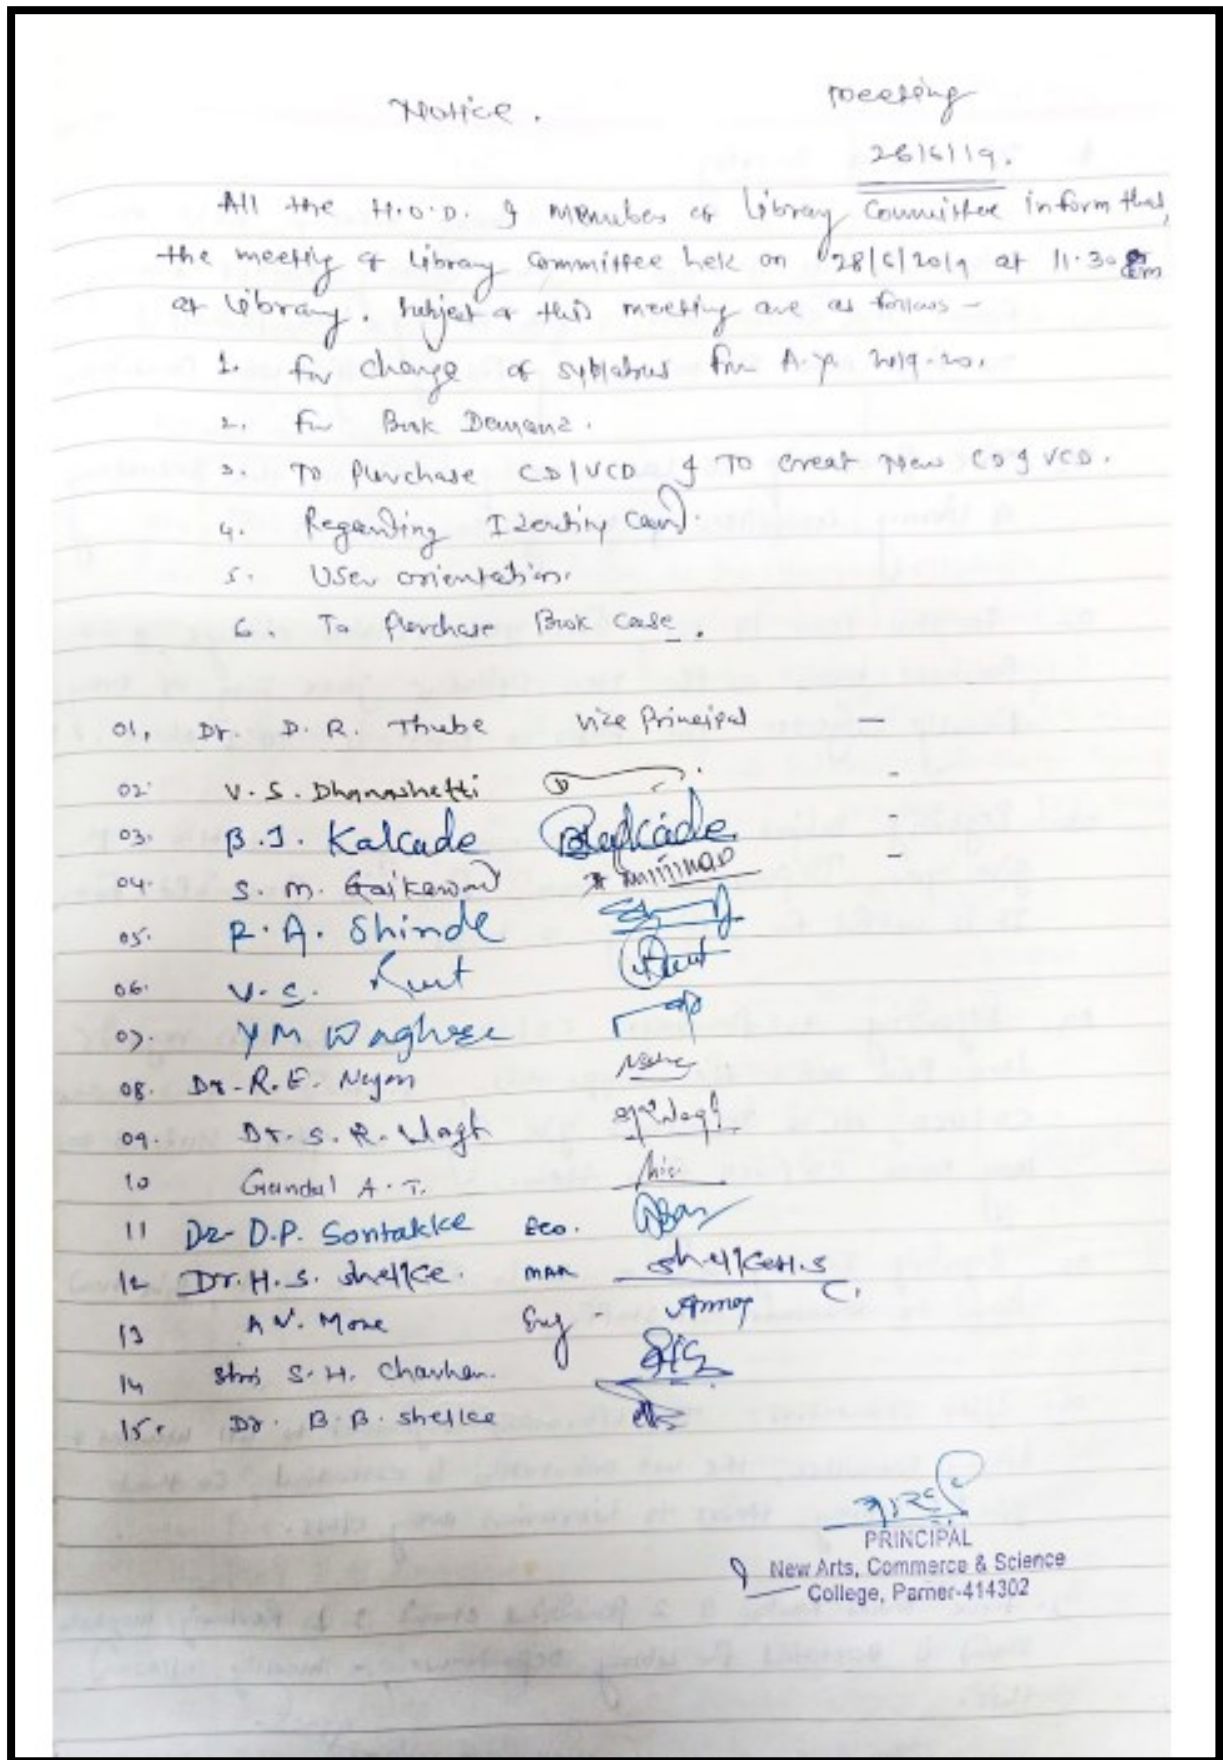 Notice.
meeting
28/6/19.
All the H.O.D. & Member of library Committee inform that,
the meeting of library Committee held on 28/6/2019 at 11.30 am
at library. Subject of this meeting are as follows -
1. for change of syllabus for A.Y. 2019-20.
2. for Book Demand.
3. To Purchase CD/VCD & To creat New CD & VCD.
4. Regarding Identity Card.
5. User orientation.
6. To Purchase Book Case.
01, Dr. D. R. Thube Vice Principal -
02. V. S. Dhanashetti -
03. B. J. Kalcade -
04. S. M. Gaikawad -
05. R. A. Shinde
06. V. S.
07. Y M Waghere
08. Dr. R. E. Najan
09. Dr. S. R. Wagh
10 Gandal A. T.
11 Dr. D.P. Sontakke Eco.
12 Dr. H. S. Shelke. MAR Shelke H.S
13 A V. More Eng -
14 S. H. Chavhan.
15. Dr. B. B. Shelke
PRINCIPAL
New Arts, Commerce & Science
College, Parner-414302